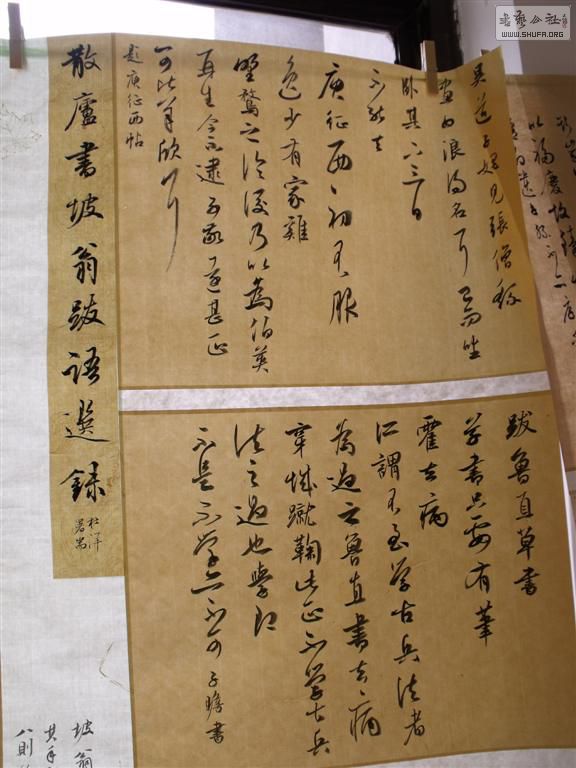 書藝公社
WWW.SHUFA.ORG
散廬書坡翁跋語選録
杜洋署耑
吳道子始見張僧繇
畫曰浪得名耳已而坐
卧其下三日
不能去
庾征西初不服
逸少有家雞
野鶩之論後乃以為伯英
再生今不逮子敬遠甚正
可比羊欣耳
題庾征西帖
跋魯直草書
學書只要有筆
霍去病
所謂不至學古兵法者
為過之魯直書去病
穿城蹴鞠此正不學古兵
法之過也學即
不是不學亦不可 子瞻書
坡翁
八則